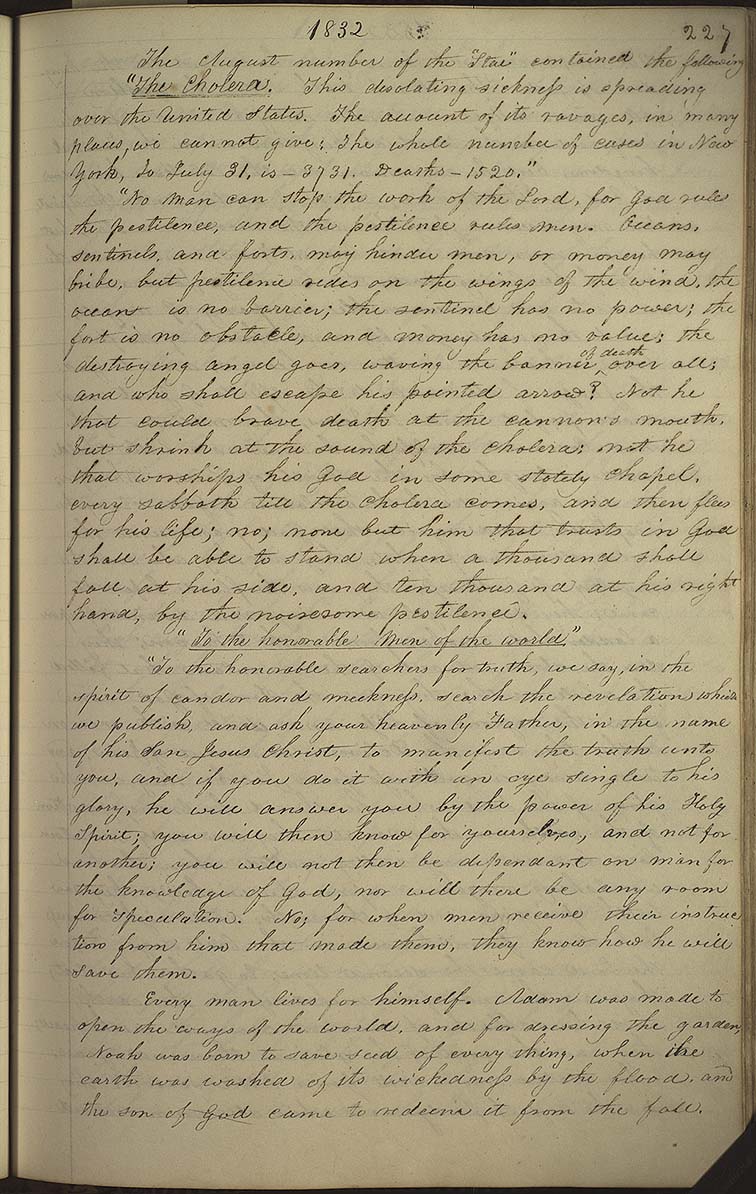 1832 227
The August number of the "Star" contained the following
"The Cholera. This desolating sickness is spreading
over the United States. The account of its ravages, in many
places, we cannot give; The whole number of cases in New
York, To July 31, is - 3731. Deaths - 1520."
"No man can stop the work of the Lord, for God rules
the pestilence, and the pestilence rules men. Oceans,
sentinels, and forts, may hinder men, or money may
bribe, but pestilence rides on the wings of the wind, the
ocean is no barrier; the sentinel has no power; the
fort is no obstacle, and money has no value; the
destroying angel goes, waving the banner of death over all;
and who shall escape his pointed arrow? Not he
that could brave death at the cannon's mouth,
but shrink at the sound of the cholera; not he
that worships his God in some stately chapel,
every sabbath till the cholera comes, and then flees
for his life; no; none but him that trusts in God
shall be able to stand when a thousand shall
fall at his side, and ten thousand at his right
hand, by the noiresome pestilence.
"To the honorable Men of the world."
"To the honorable searchers for truth, we say, in the
spirit of candor and meekness, search the revelations which
we publish, and ask your heavenly Father, in the name
of his Son Jesus Christ, to manifest the truth unto
you, and if you do it with an eye single to his
glory, he will answer you by the power of his Holy
Spirit; you will then know for yourselves, and not for
another; you will not then be dependant on man for
the knowledge of God, nor will there be any room
for speculation. No; for when men receive their instruc
tion from him that made them, they know how he will
save them.
Every man lives for himself. Adam was made to
open the ways of the world, and for dressing the garden,
Noah was born to save seed of every thing, when the
earth was washed of its wickedness by the flood, and
the son of God came to redeem it from the fall.